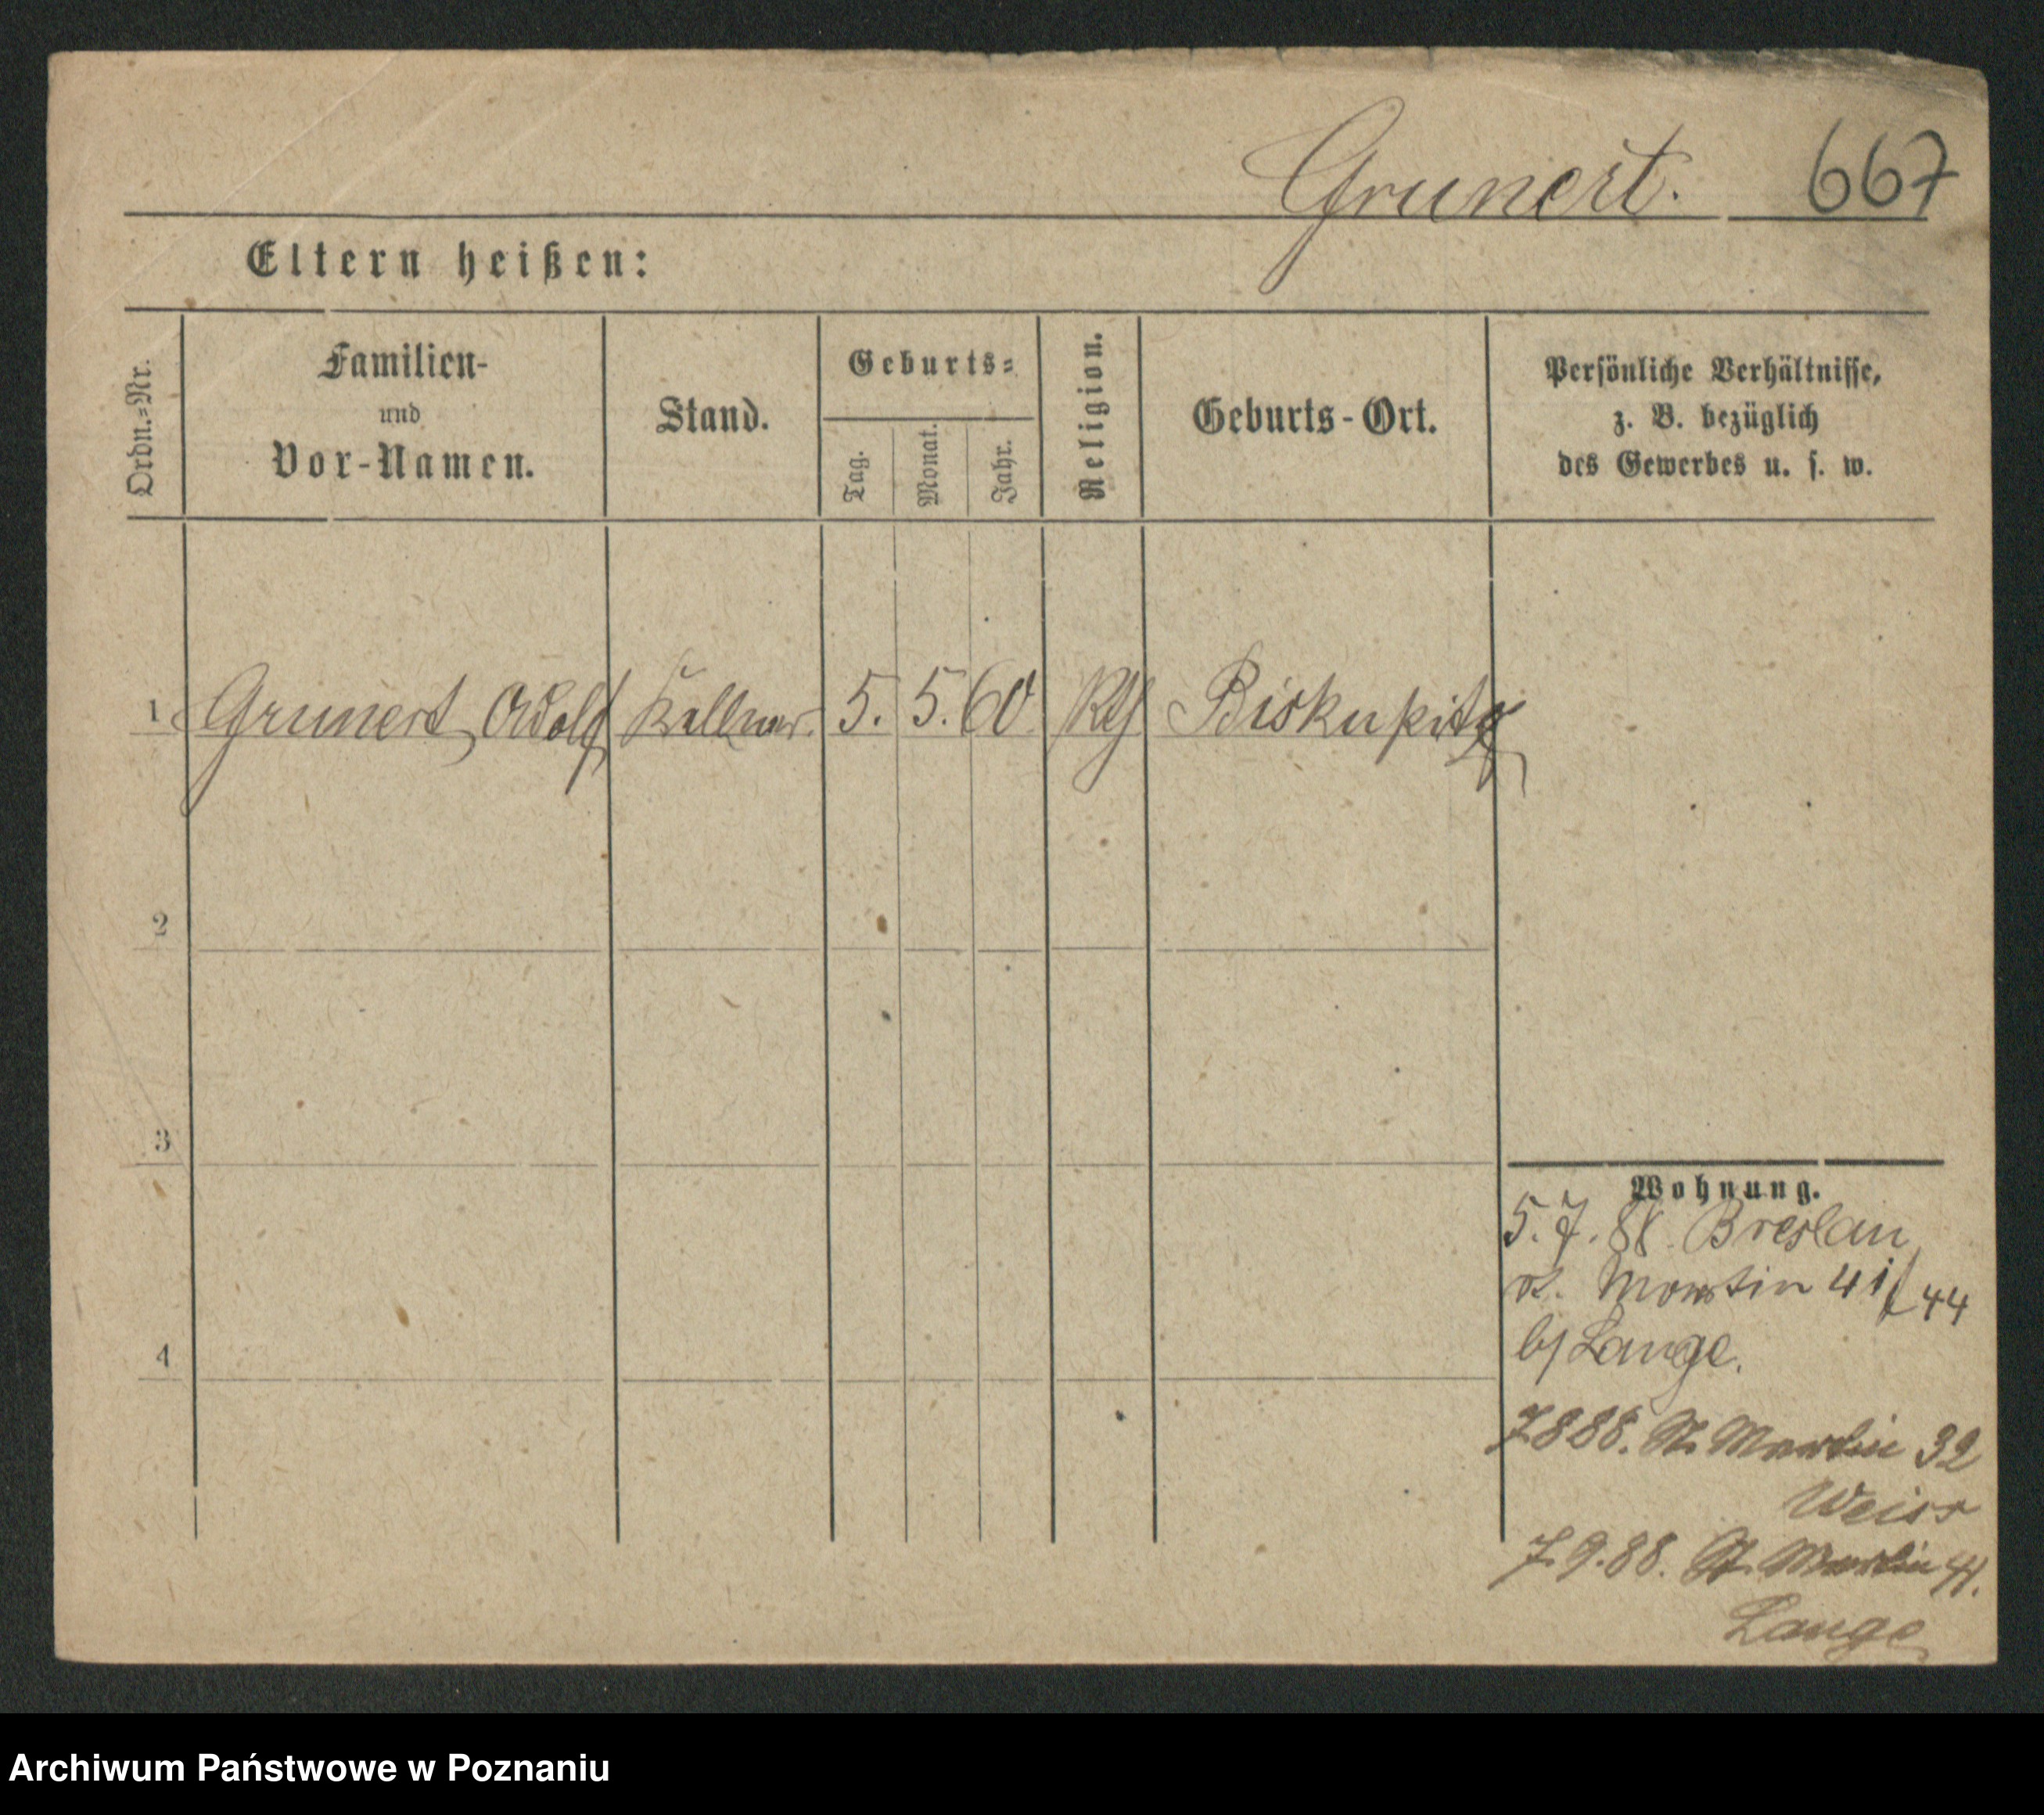 Grunert. 667
Eltern heißen:
Ordn.=Nr.
Familien-
und
Vor-Namen.
Stand.
Geburts=
Tag.
Monat.
Jahr.
Religion.
Geburts-Ort.
Persönliche Verhältnisse,
z. B. bezüglich
des Gewerbes u. s. w.
1 Grunert, Adolf Kellner. 5. 5. 60 Biskupitz
2
3
4
Wohnung.
5. 7. 88. Breslau
St. Martin 41/44
b/ Lange.
7 8 88. St. Martin 32
Weiss
7. 9. 88. St. Martin 41.
Lange
Archiwum Państwowe w Poznaniu